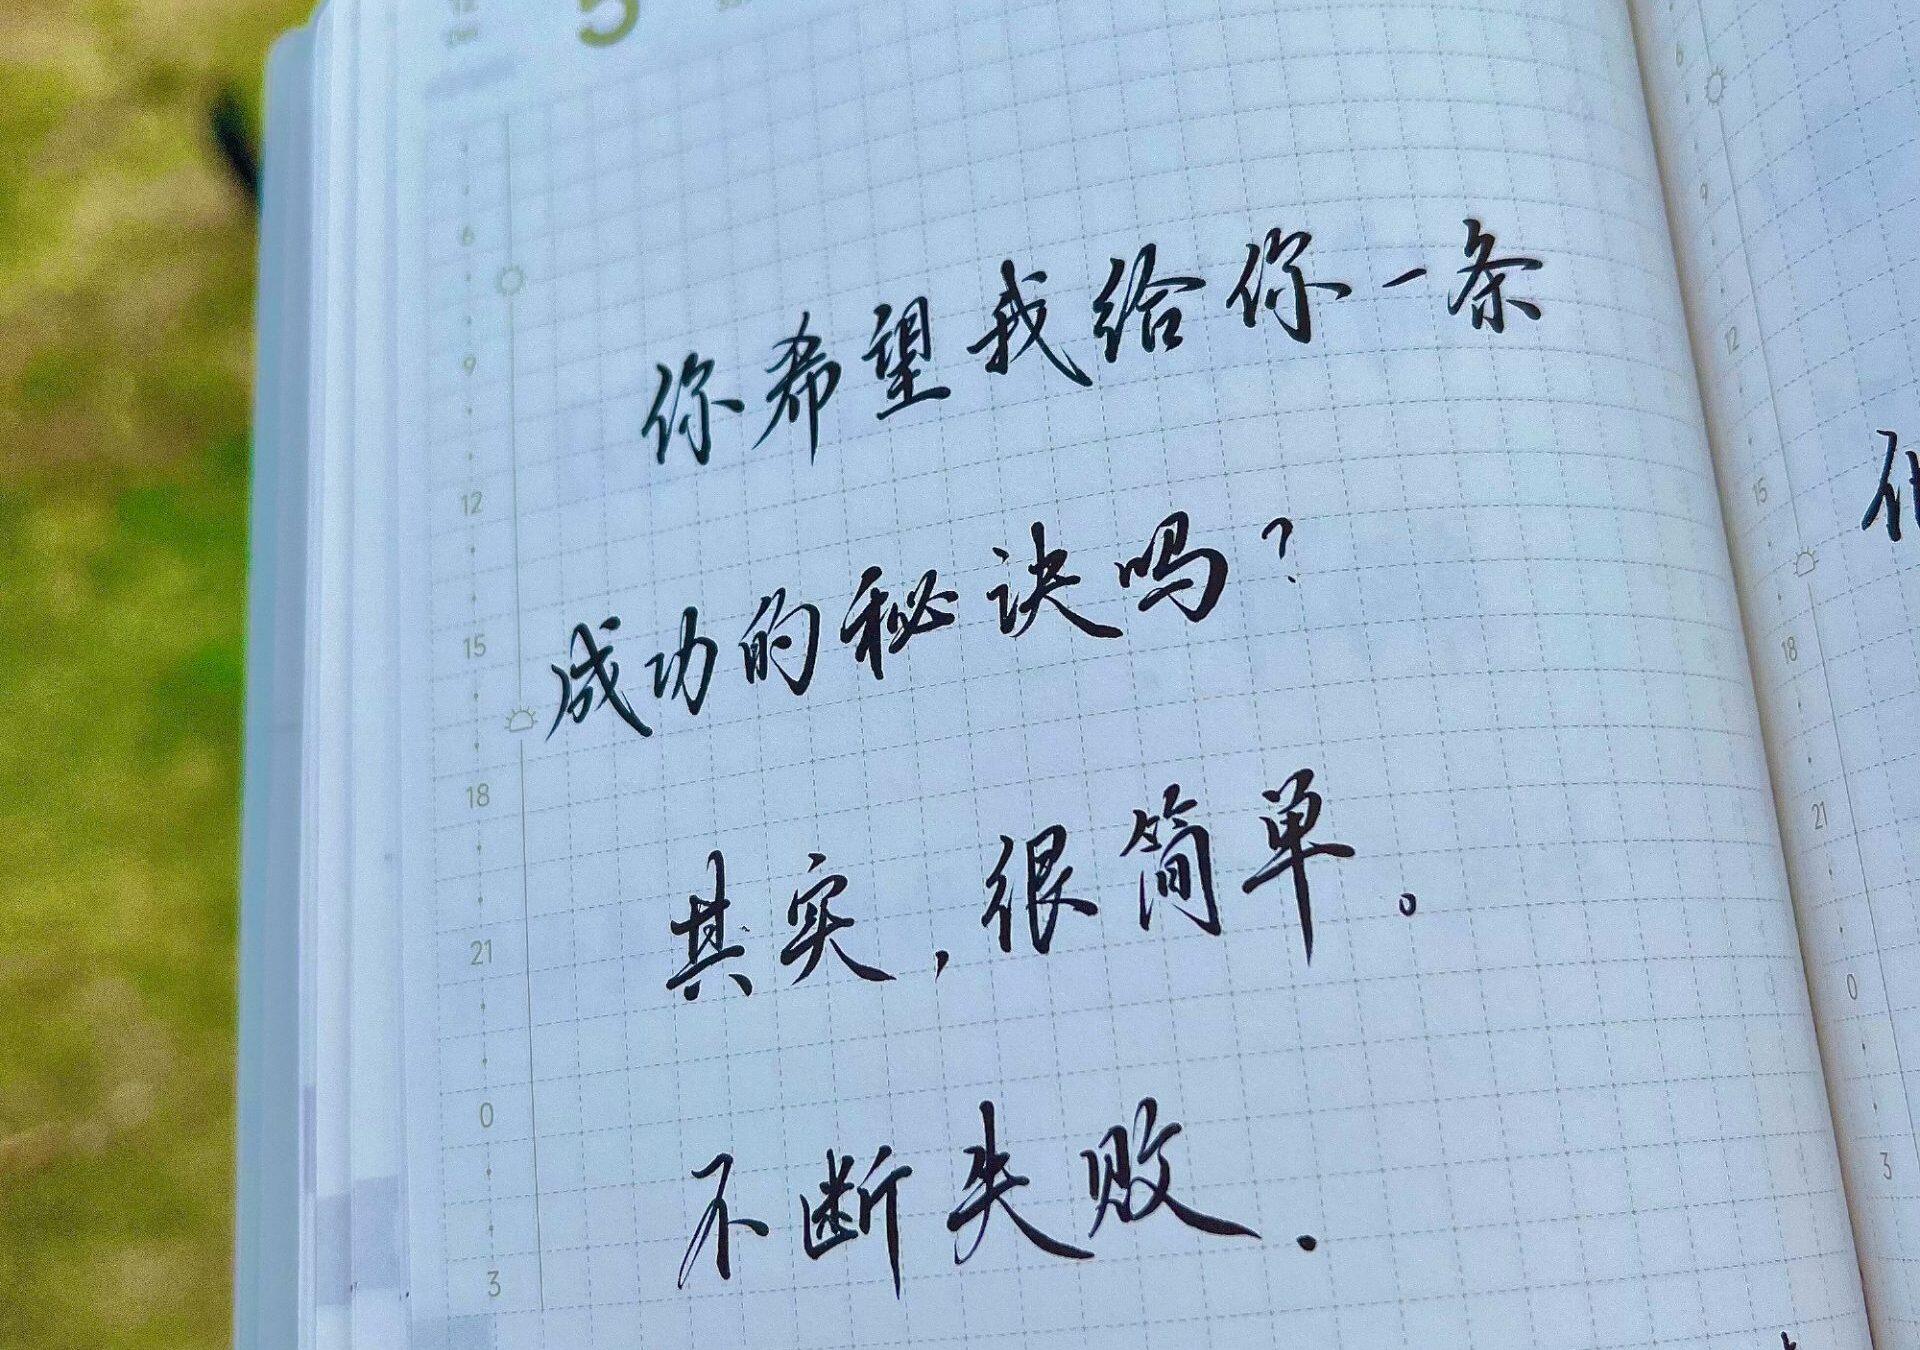 5
6
9
12
15
18
21
0
3
你希望我给你一条
成功的秘诀吗?
其实,很简单。
不断失败.
6
9
12
15
18
21
0
3